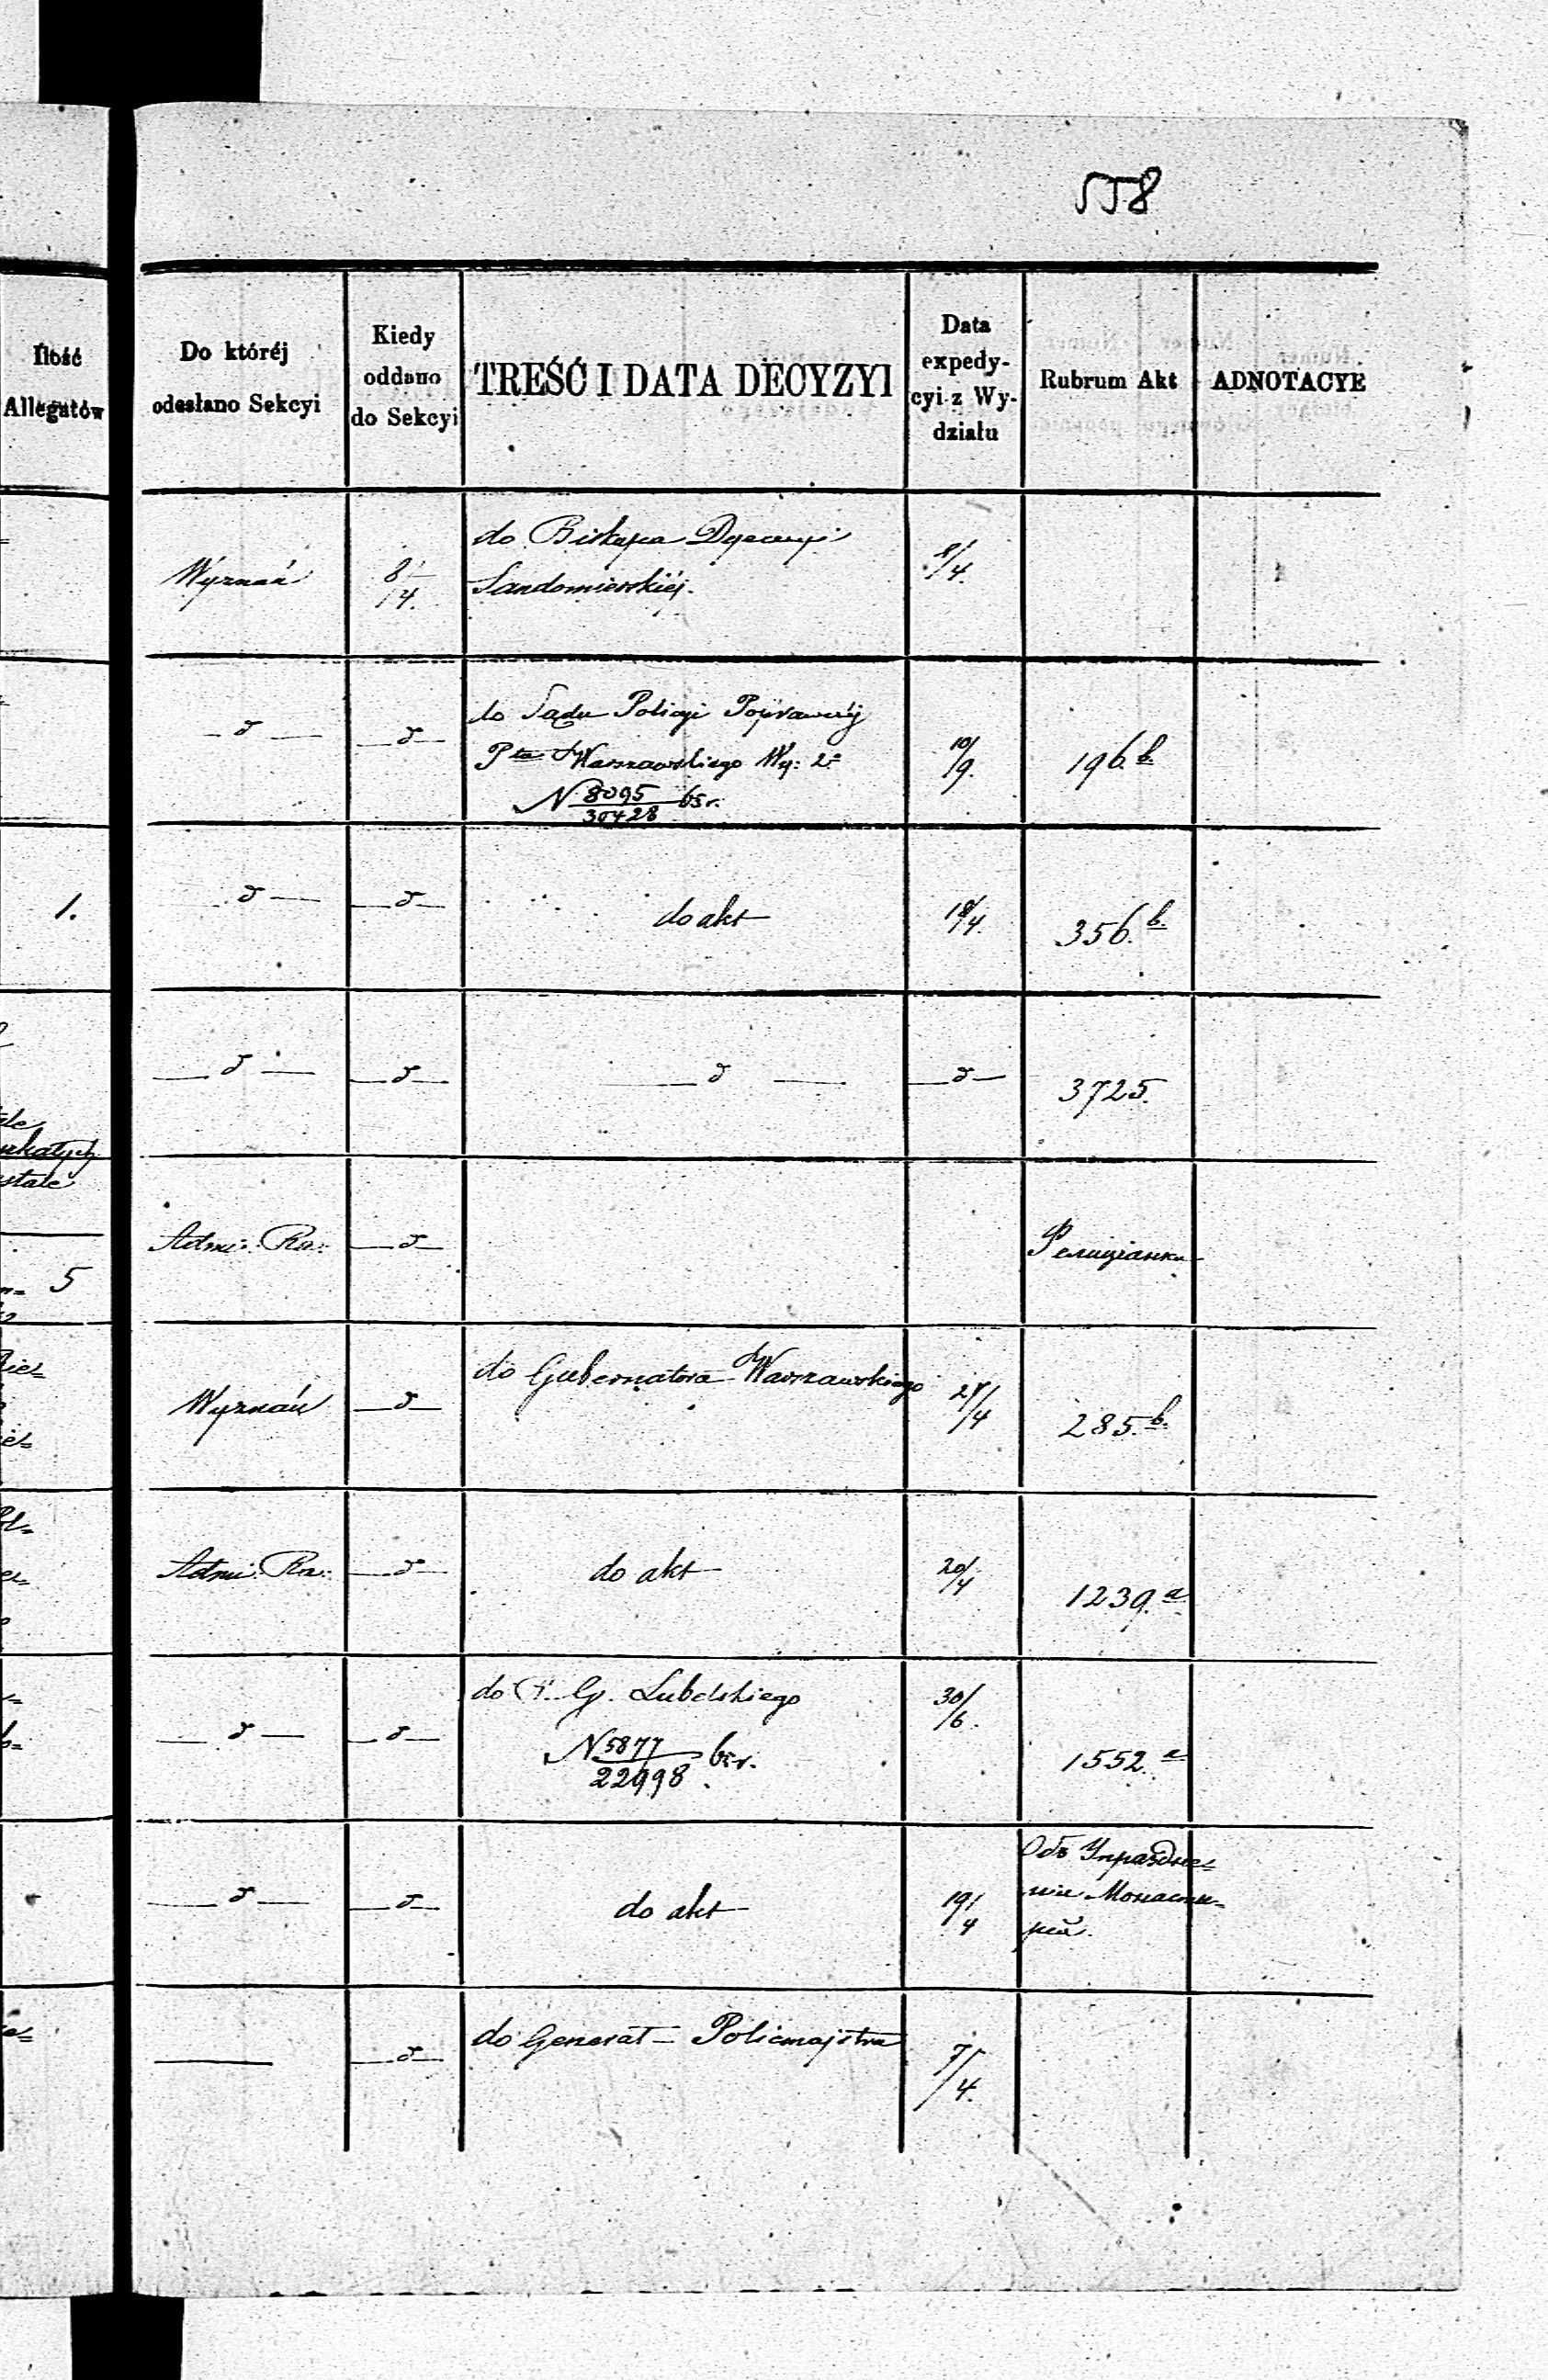 558
Ilość
Allegatów
Do któréj
odesłano Sekcyi
Kiedy
oddano
do Sekcyi
TREŚĆ I DATA DECYZYI
Data
expedy-
cyi z Wy-
działu
Rubrum Akt
ADNOTACYE
Wyznań
8/4.
do Biskupa Dyecezyi
Sandomierskiéj.
8/4.
— d —
— d —
do Sądu Policyi Poprawczéj
Ptu Warszawskiego Wy: 2º
N 8095/30428 bśr.
10/9.
196.b.
1.
— d —
— d —
do akt
18/4.
356.b.
— d —
— d —
— d —
— d —
3725.
ukatych
stale
5
Admi: Ra:
— d —
Фелиціанки
Wyznań
— d —
do Gubernatora Warszawskiego
27/4
285.b.
Admi: Ra:
— d —
do akt
20/4
1239.a
— d —
— d —
do G. Lubelskiego
N 5877/22998 bśr.
30/6.
1552.a
— d —
— d —
do akt
19/4
Объ Упраздне=
нiи Монасты=
рей.
— d —
do Generał - Policmajstra
7/4.